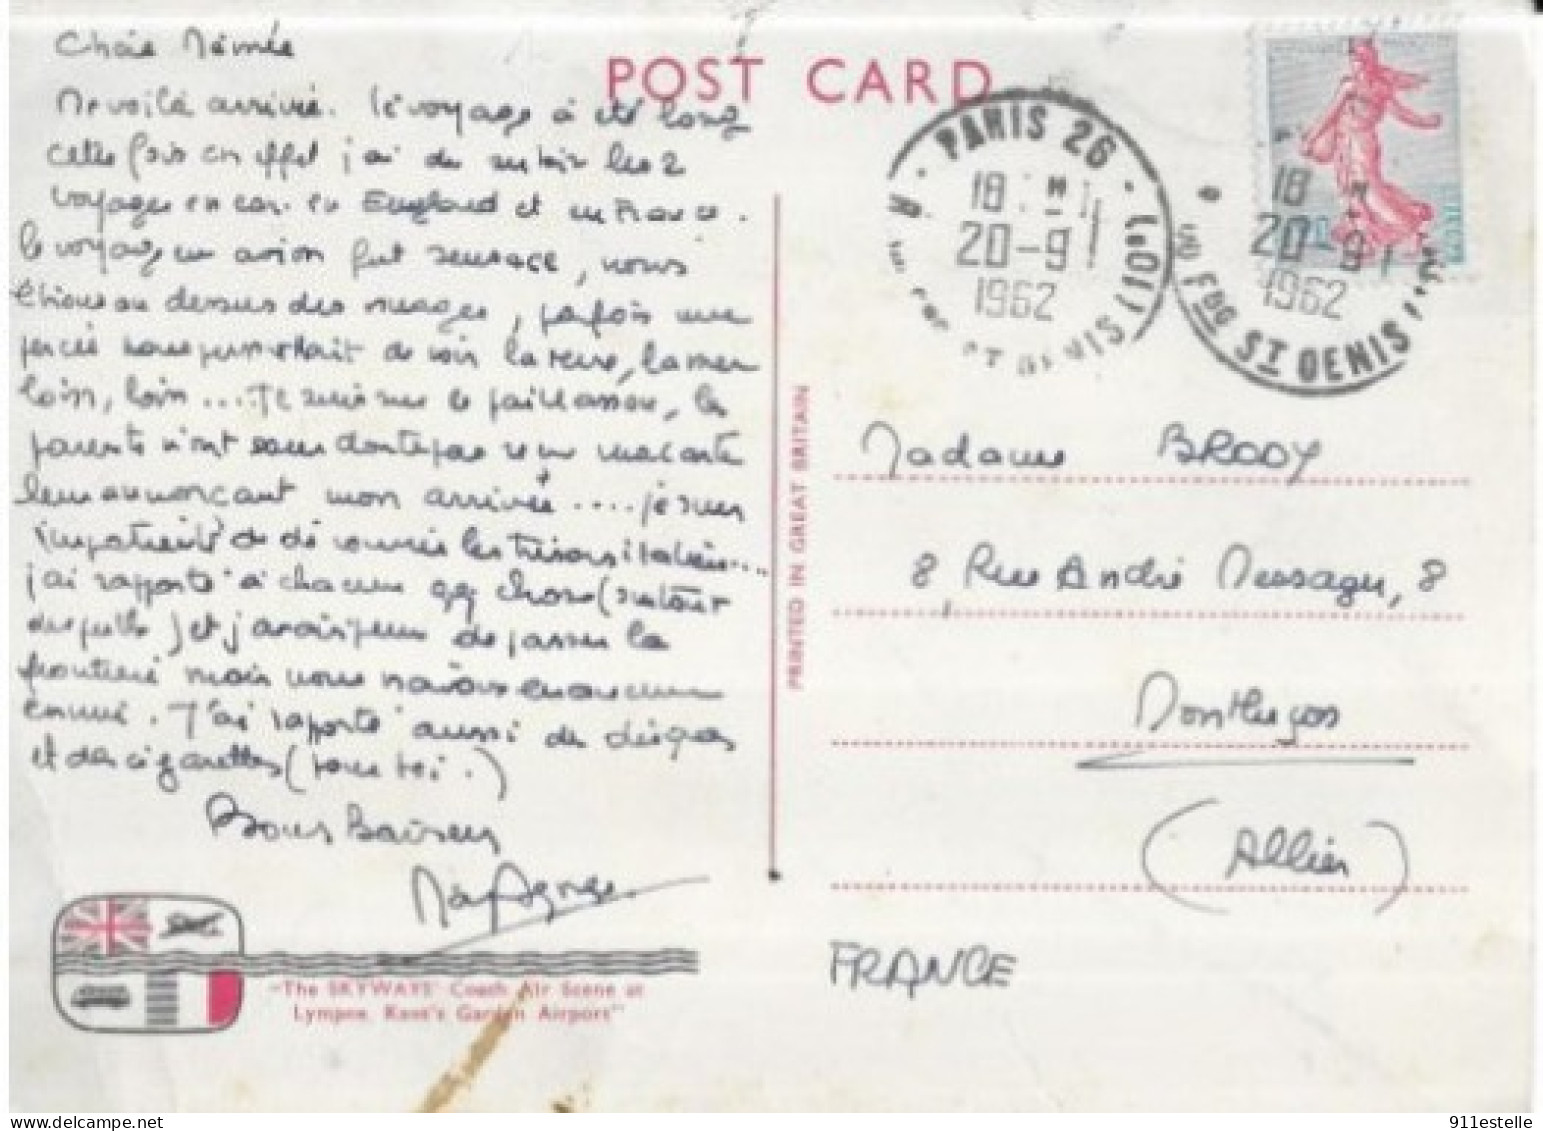 POST CARD
Chère Mémée
Me voilà arrivée. Le voyage à été long
cette fois en effet j'ai du subir les 2
voyages en car en England et en France.
le voyage en avion fut sensass, nous
étions au dessus des nuages, parfois une
percée nous permettait de voir la terre, la mer
loin, loin... Je suis sur le paillasson, les
parents n'ont sans doute pas reçu ma carte
leur annonçant mon arrivée.... je suis
impatiente de découvrir les trésors italiens....
j'ai rapporté à chacun qq chose (surtout
des pulls) et j'avais peur de passer la
frontière mais nous n'avons eu aucun
ennui. J'ai rapporté aussi des disques
et des cigarettes (pour toi.)
Bons Baisers
"The SKYWAYS' Coach Air Scene at
Lympne, Kent's Garden Airport"
PRINTED IN GREAT BRITAIN
PARIS 26
18 H
20-9
1962
ST DENIS
18 H
20-9
1962
FBG ST DENIS
Madame BRODY
8, Rue André Messager, 8
Montluçon
(Allier)
FRANCE
911estelle